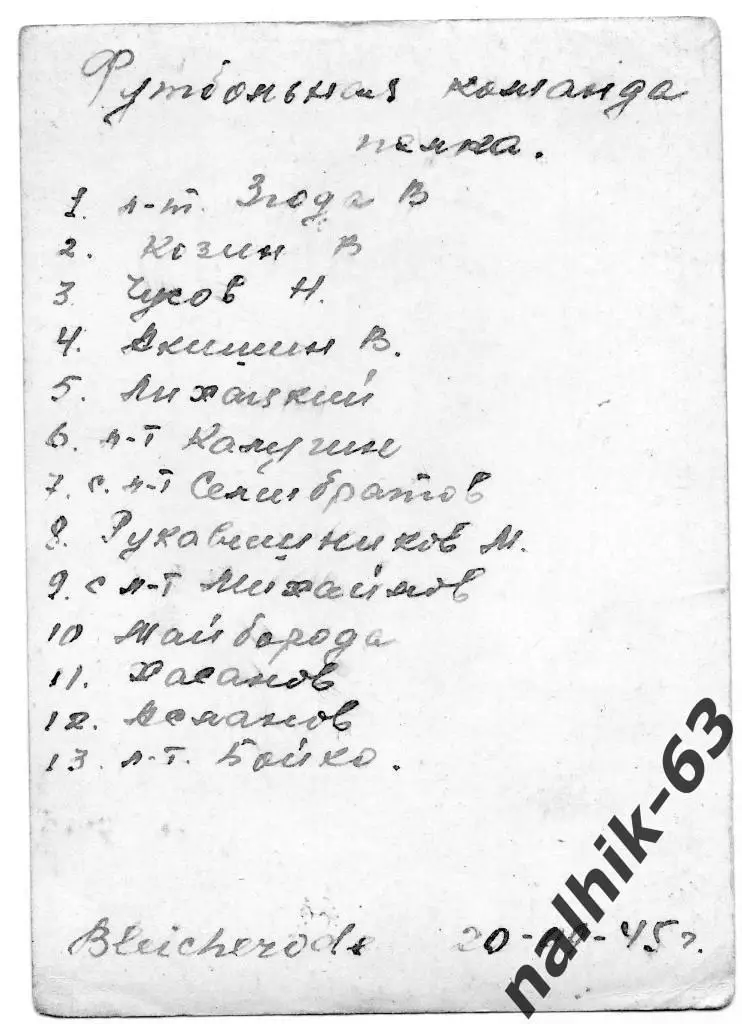 Футбольная команда
полка.
1. л-т. Згода В
2. Козин В
3 Чусов Н.
4. Акишин В.
5. Лихацкий
6. л-т Калугин
7. с. л-т Селибратов
8. Рукавишников М.
9. с л-т Михайлов
10 Майборода
11. Хасанов
12. Асланов
13. л-т. Бойко.
Bleicherode 20- -45 г.
nalhik-63